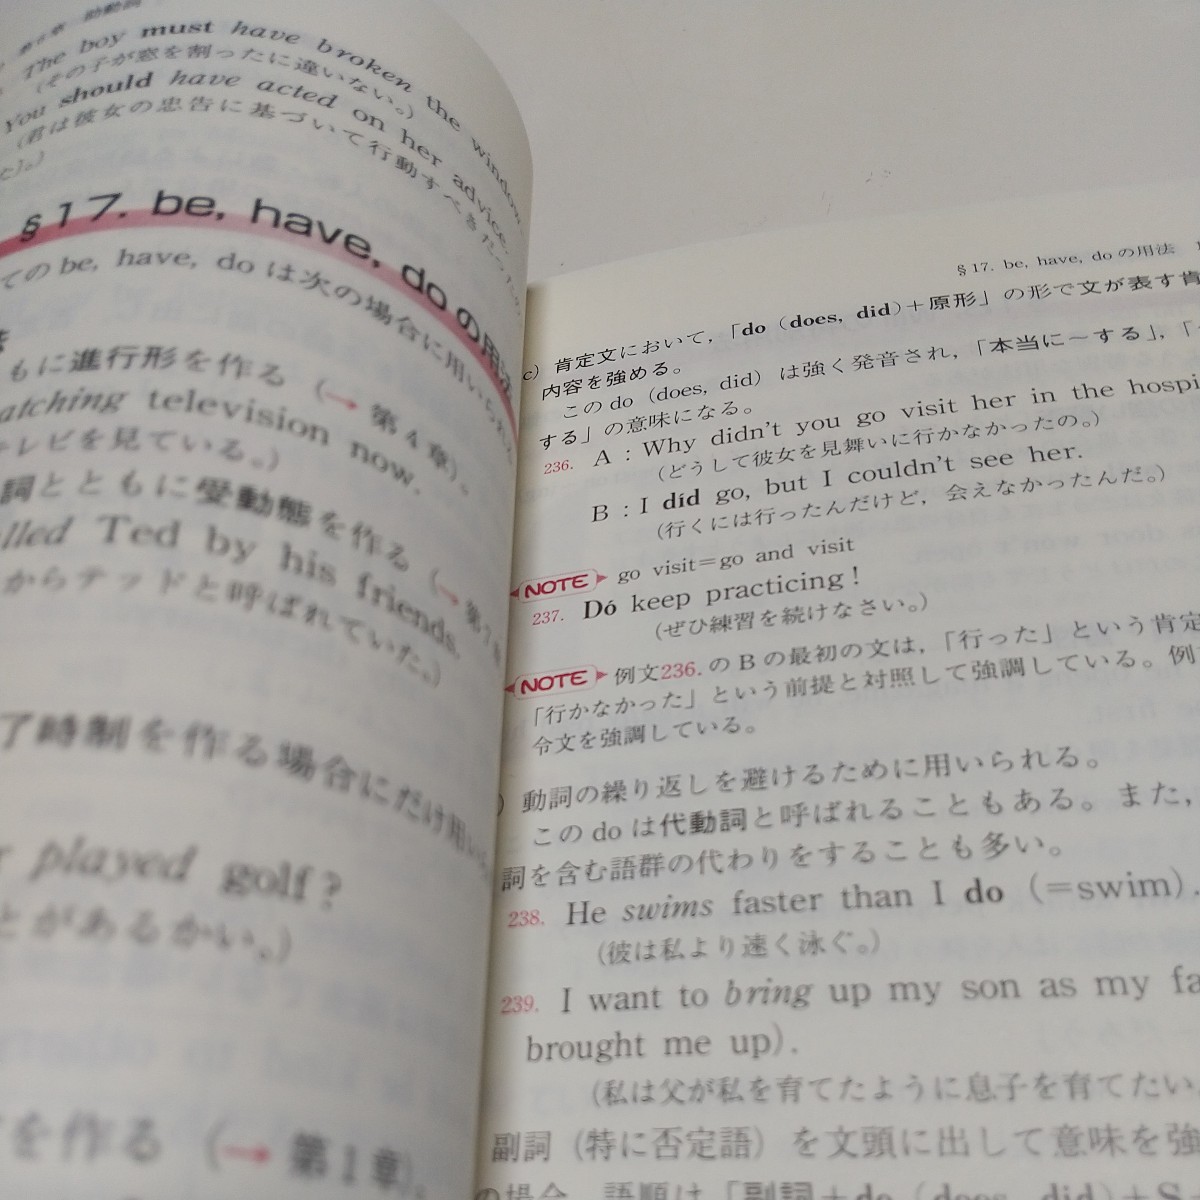 第6章 助動詞
The boy must have broken the window.
(その子が窓を割ったに違いない。)
You should have acted on her advice.
(君は彼女の忠告に基づいて行動すべきだった
§17. be, have, do の用法
てのbe, have, do は次の場合に用い
もに進行形を作る (→ 第4章)。
atching television now.
テレビを見ている。)
詞とともに受動態を作る (→ 第7
lled Ted by his friends.
からテッドと呼ばれていた。)
了時制を作る場合にだけ用い
played golf?
とがあるかい。)
を作る (→ 第1章)。
§17. be, have, do の用法
c) 肯定文において,「do (does, did)+原形」の形で文が表す肯
内容を強める。
この do (does, did) は強く発音され,「本当に~する」,「
する」の意味になる。
236. A : Why didn't you go visit her in the hospi
(どうして彼女を見舞いに行かなかったの。)
B : I díd go, but I couldn't see her.
(行くには行ったんだけど, 会えなかったんだ。)
NOTE go visit=go and visit
237. Dó keep practicing!
(ぜひ練習を続けなさい。)
NOTE 例文236. の B の最初の文は,「行った」という肯定
「行かなかった」という前提と対照して強調している。例
令文を強調している。
) 動詞の繰り返しを避けるために用いられる。
この do は代動詞と呼ばれることもある。また,
詞を含む語群の代わりをすることも多い。
238. He swims faster than I do (=swim).
(彼は私より速く泳ぐ。)
239. I want to bring up my son as my fa
brought me up).
(私は父が私を育てたように息子を育てたい
副詞 (特に否定語) を文頭に出して意味を強
の場合, 語順は「副詞+do (does, did)+S